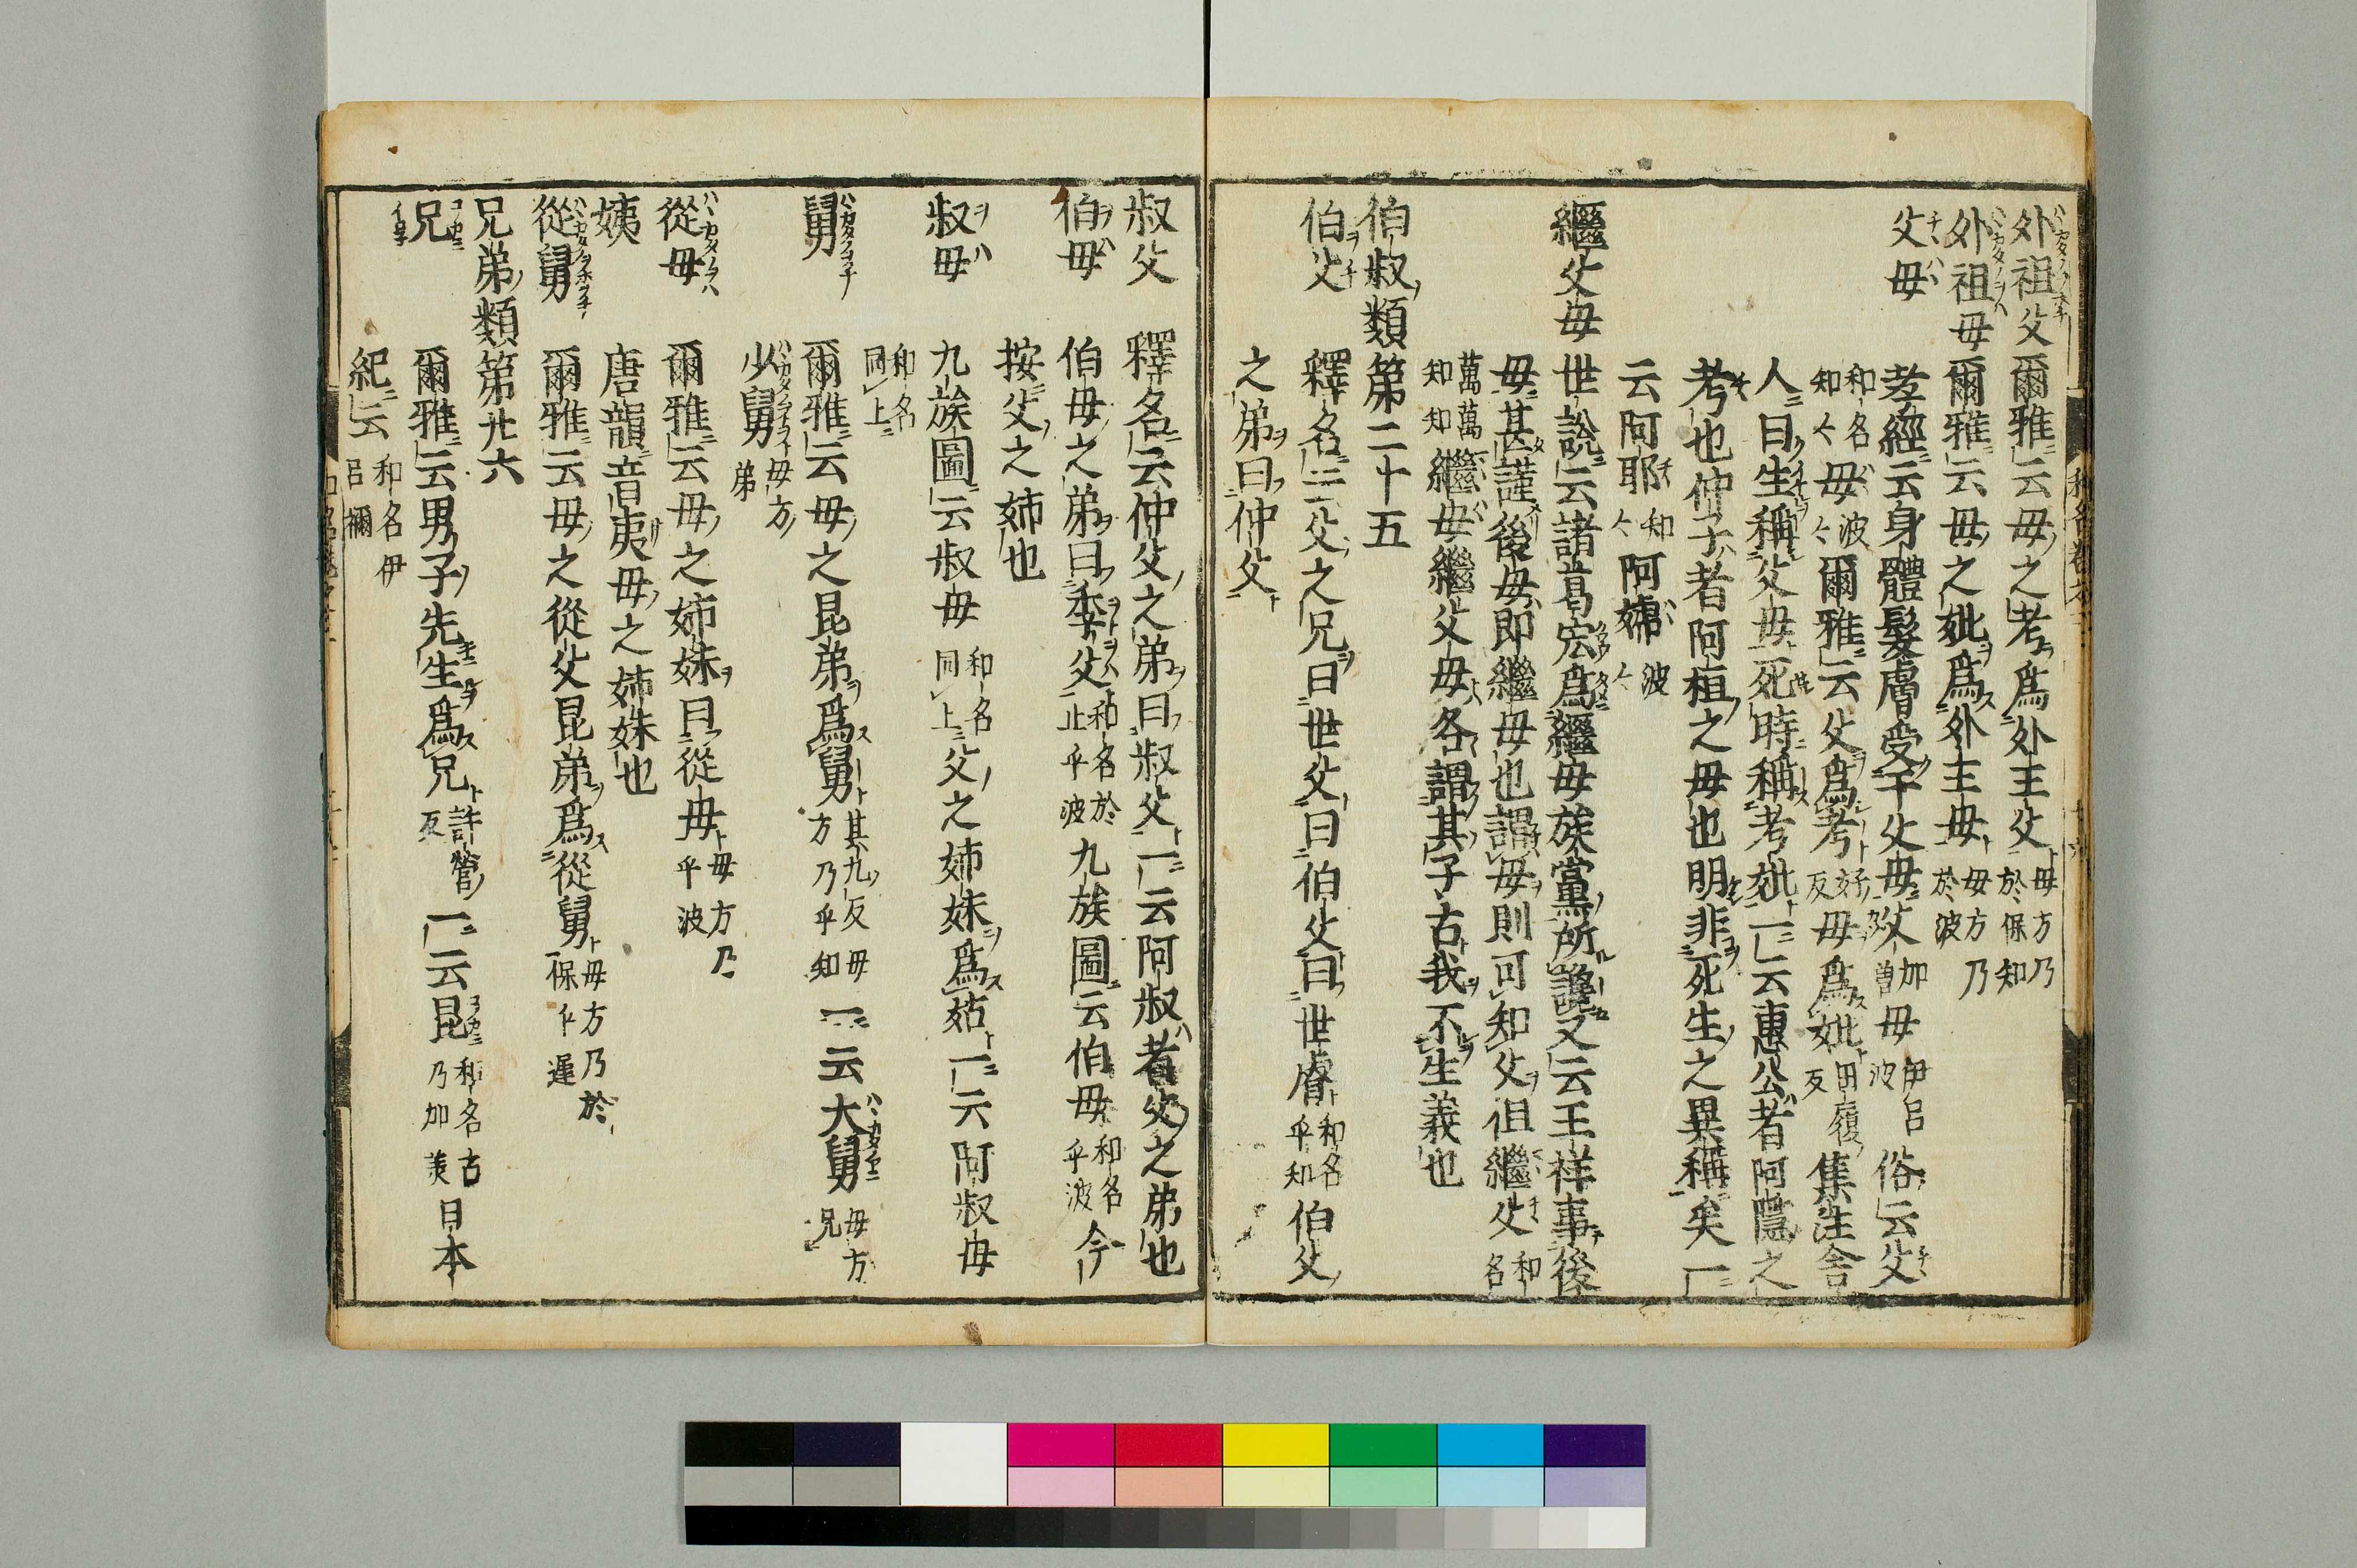 外祖父爾雅云母之考為外王父母方乃於保知
外祖母爾雅云母之妣為外王母母方乃於波
父母 孝經云身體髮膚受于父母父加曽母伊呂波俗云父
和名知々母波々爾雅云父為考好反母為妣甲履反集注舎
人曰生稱父母死時稱考妣一云惠公者阿隠之
考也仲子者阿桓之母也明非死生之異稱矣一
云阿耶知々阿嬭波々
繼父母 世說云諸葛宏為繼母族黨所讒又云王祥事後
母甚謹後母即繼母也謂母則可知父徂繼父和名
萬萬知知繼母繼父母各謂其子古我不生義也
伯叔類第二十五
伯父 釋名云父之兄曰世父曰伯父曰世膚和名乎知伯父
之弟曰仲父
叔父 釋名云仲父之弟曰叔父一云阿叔者父之弟也
伯母 伯母之弟曰季父和名於止乎波九族圖云伯母和名乎波今
按父之姉也
叔母 九族圖云叔母和名同上父之姉妹為姑一云阿叔母
和名同上
舅 爾雅云母之昆弟為舅其九反母方乃乎知一云大舅母方兄
少舅母方弟
從母 爾雅云母之姉妹曰從母母方乃乎波
姨 唐韻音夷母之姉妹也
從舅 爾雅云母之從父昆弟為從舅母方乃於保乎遅
兄弟類第廿六
兄 爾雅云男子先生為兄許營反一云昆和名古乃加美日本
紀云和名伊呂禰